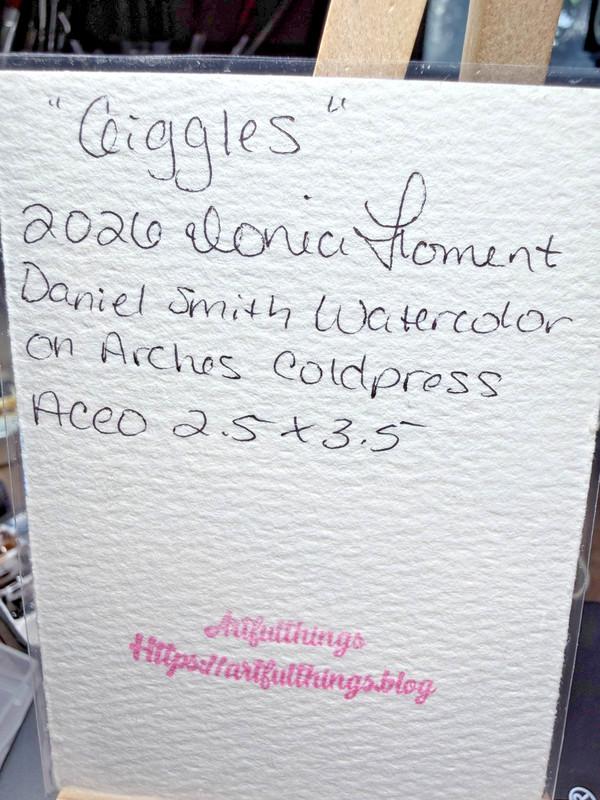 "Giggles"
2026 Donica Floment
Daniel Smith Watercolor
on Arches Coldpress
ACEO 2.5 x 3.5
Artfulthings
Https://artfulthings.blog